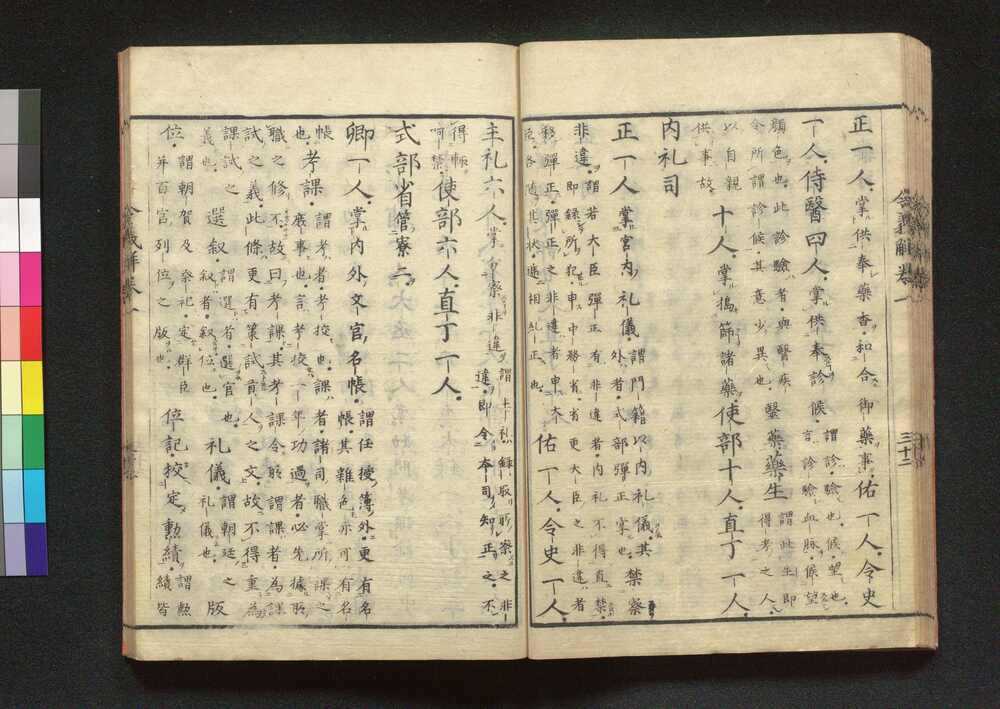 正一人。掌供奉藥香。和合御藥事。佑一人。令史
一人。侍醫四人。掌供奉診候。謂。診。驗也。候。望也。言。診驗血脉。候望
顔色也。此診驗者。與醫疾令所謂診候。其意少異也。醫藥藥生謂此生。即得考之人。
以自親供事故。十人。掌搗篩諸藥。使部十人。直丁一人。
内礼司
正一人掌宮内礼儀。謂。門籍以内礼儀。其禁察
非違。謂。若大臣彈正有非違者。内礼不得直禁。即録所犯。申中務省。省更大臣之非違者
移彈正。彈正之非違者申太
佑一人。令史一人。
主礼六人。掌分察非違。謂。主礼録取所察之非違。即令本司知正之。不
得輙呵禁。使部六人。直丁一人。
式部省管寮二
卿一人。掌内外文官名帳。謂。任授簿外。更有名帳。其雜色亦可有名
帳也。考課。謂。考者。考校也。課者諸司職掌所課之
職之修不。故曰考課。其考課令所謂課者。為課
試之義。此條更有策試貢人之文。故不得重為
課試之義也。選叙。謂。選者。選官也。叙者。叙位也。礼儀。謂朝廷之礼儀也。版
位。謂朝賀及祭祀。定群臣并百官列位之版也。位記。校定勲績。謂勲績皆
令義解卷一
三十二